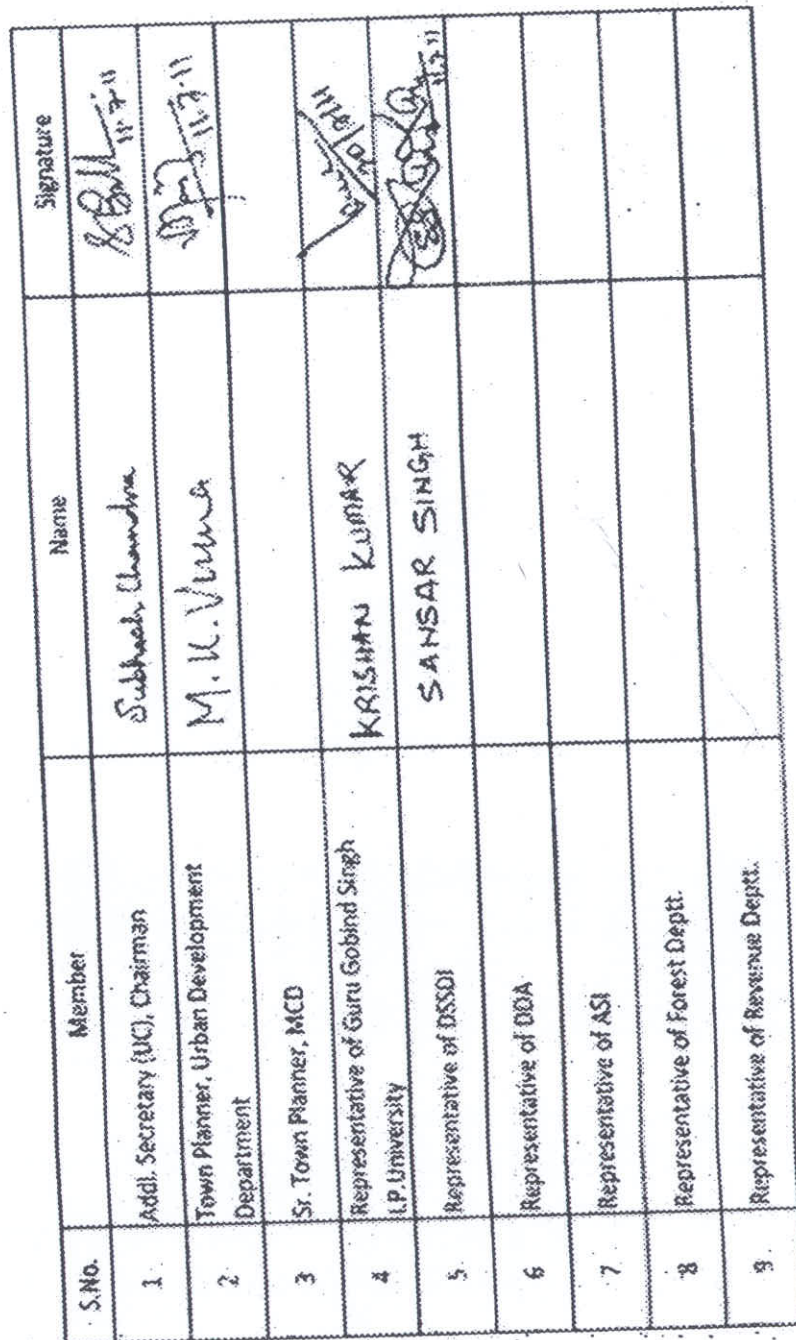 S.No. Member Name Signature
1 Addl. Secretary (UC), Chairman Subhash Chandra 11.7.11
2 Town Planner, Urban Development M. K. Verma 11.7.11
Department
3 Sr. Town Planner, MCD
4 Representative of Guru Gobind Singh KRISHAN KUMAR
I.P.University
5 Representative of DSSDI SANSAR SINGH 11.7.11
6 Representative of DDA
7 Representative of ASI
8 Representative of Forest Deptt.
9 Representative of Revenue Deptt.